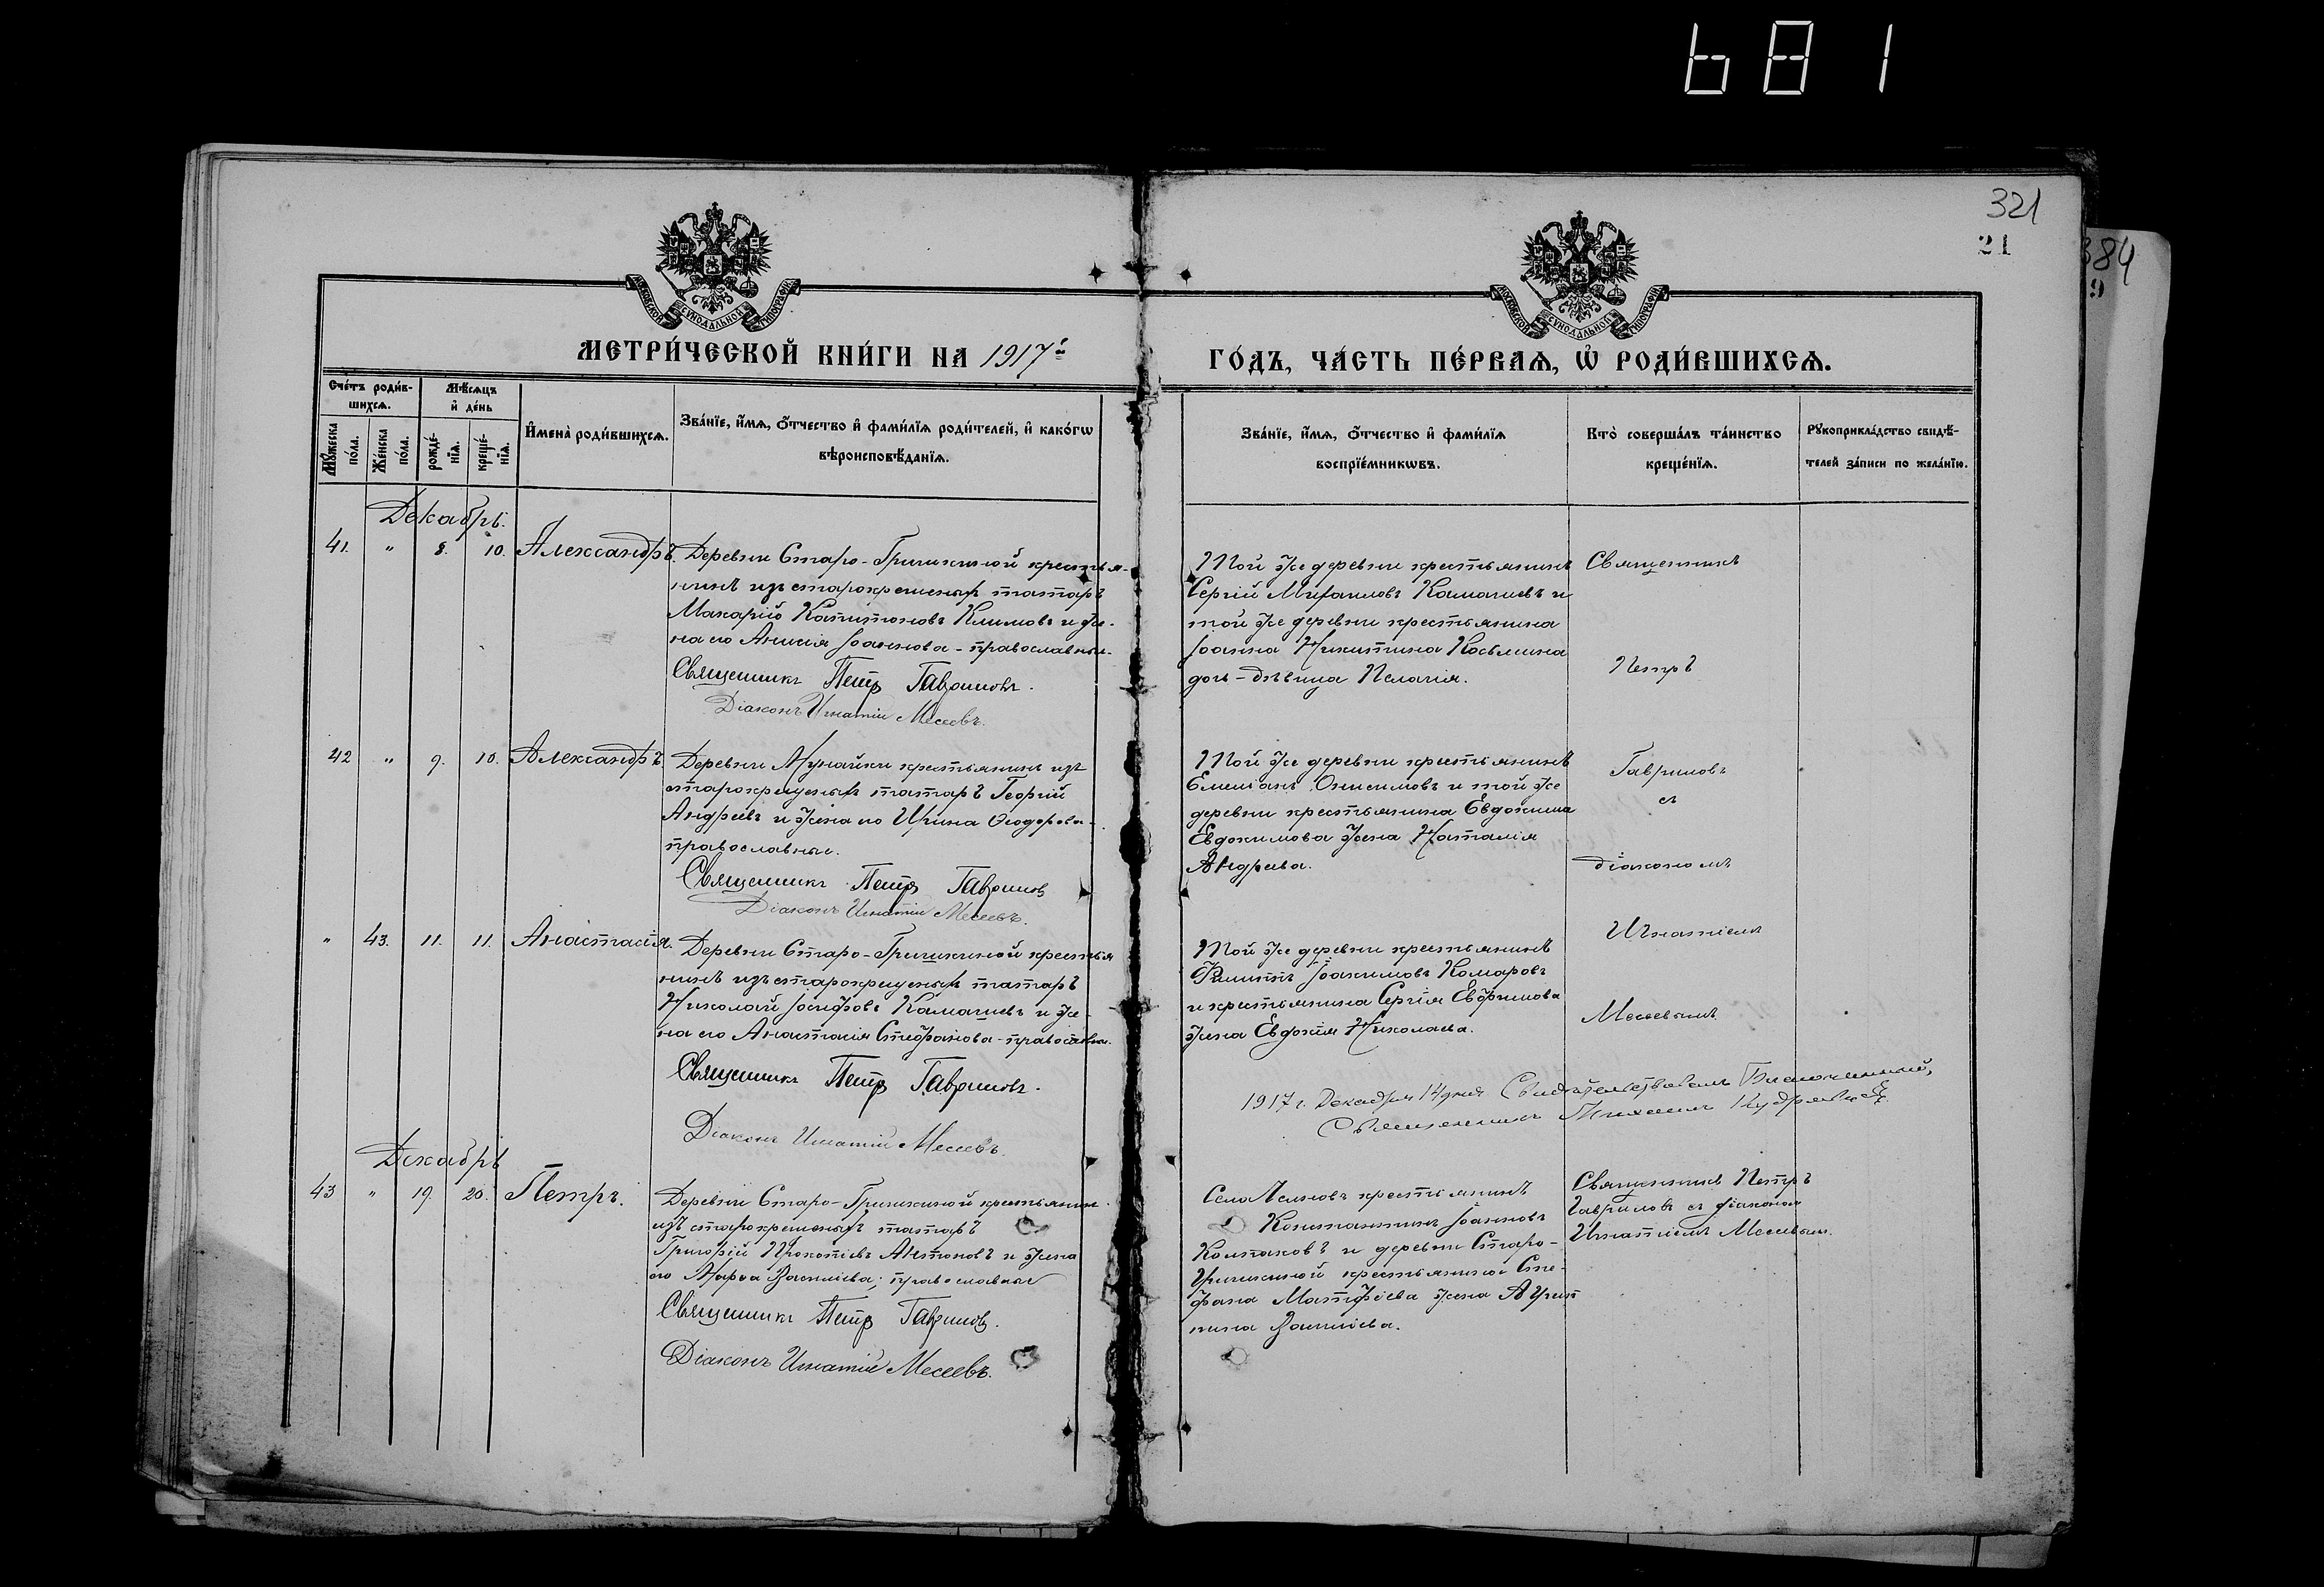 681
321
21
384
9
МОСКОВСКОЙ СѴНОДАЛЬНОЙ ТИПОГРАФІИ
МОСКОВСКОЙ СѴНОДАЛЬНОЙ ТИПОГРАФІИ
МЕТРИ́ЧЕСКОЙ КНИ́ГИ НА 1917й
ГО́ДЪ, ЧА́СТЬ ПЕ́РВАЯ, Ѡ РОДИ́ВШИХСЯ.
Сче́тъ роди́в-
шихся.
Мѣсяцъ
и де́нь
Му́жеска
по́ла.
Же́нска
по́ла.
рожде́-
нїя.
креще́-
нїя.
Имена̀ роди́вшихся.
Зва́нїе, имя, отчество и фами́лїя роди́телей, и како́гѡ
вѣроисповѣданїя.
Зва́нїе, имя, отчество и фами́лїя
воспрїе́мникѡвъ.
Кто̀ соверша́лъ та́инство
креще́нїя.
Рукоприкла́дство свидѣ-
телей за́писи по жела́нїю.
Декабрь.
41. " 8. 10. Александръ.
Деревни Старо-Гришкиной крестья-
нинъ изъ старокрещеныхъ татаръ
Макарій Капитоновъ Климовъ и же-
на его Анисія Іоаннова - православные.
Священникъ Петръ Гавриловъ.
Діаконъ Игнатій Месеевъ.
Той же деревни крестьянинъ
Сергій Михаиловъ Камашевъ и
той же деревни крестьянина
Іоанна Никитина Косьмина
дочь - дѣвица Пелагія.
Священникъ
Петръ
42 " 9. 10. Александръ
Деревни Мунайки крестьянинъ изъ
старокрещеныхъ татаръ Георгій
Андреевъ и жена его Ирина Ѳеодорова -
православные.
Священникъ Петръ Гавриловъ
Діаконъ Игнатій Месеевъ.
Той же деревни крестьянинъ
Емеліанъ Онисимовъ и той же
деревни крестьянина Евдокима
Евдокимова жена Наталія
Андреева.
Гавриловъ
съ
діакономъ
" 43. 11. 11. Анастасія.
Деревни Старо-Гришкиной крестья
нинъ изъ старокрещеныхъ татаръ
Николай Іосифовъ Камашевъ и же-
на его Анастасія Стефанова - православн.
Священникъ Петръ Гавриловъ.
Діаконъ Игнатій Месеевъ.
Той же деревни крестьянинъ
Филиппъ Іоакимовъ Комаровъ
и крестьянина Сергія Евфимова
жена Евдокія Николаева.
Игнатіемъ
Месеевымъ.
1917 г. Декабря 14 дня Свидѣтельствовалъ Благочинный,
Священникъ Михаилъ Кудрявцевъ
Декабрь
43 " 19. 20. Петръ.
Деревни Старо-Гришкиной крестьянинъ
изъ старокрещеныхъ татаръ
Григорій Прокопіевъ Антоновъ и жена
его Марѳа Василіева; православные
Священникъ Петръ Гавриловъ.
Діаконъ Игнатій Месеевъ.
Села крестьянинъ
Константинъ Іоанновъ
Колпаковъ и деревни Старо-
Гришкиной крестьянина Сте-
фана Матфіева жена Агрип
пина Василіева.
Священникъ Петръ
Гавриловъ съ діакономъ
Игнатіемъ Месеевымъ.